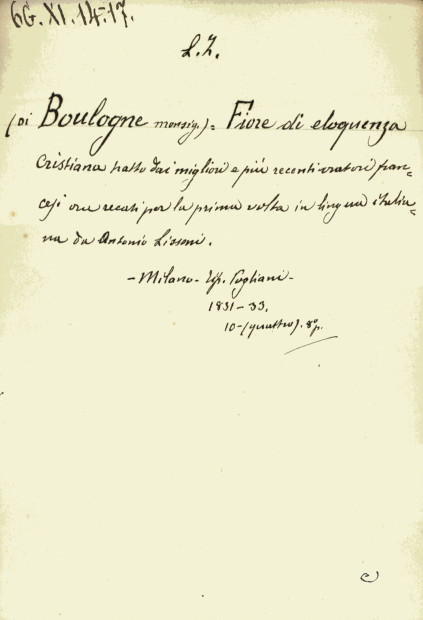 6G. XI. 14-17.
L. Z.
(Di Boulogne monsig.) = Fiore di eloquenza
Cristiana tratto dai migliori e più recenti oratori fran=
cesi ora recati per la prima volta in lingua italia=
na da Antonio Lissoni.
- Milano - Tip. Pogliani -
1831-33.
10-(quattro). 8º p.